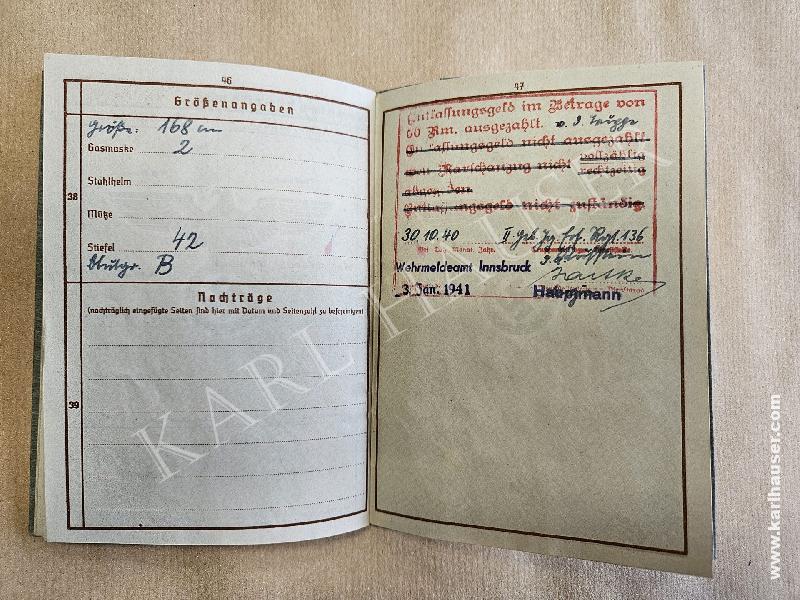 46
Größenangaben
Größe: 168 cm
Gasmaske 2
Stahlhelm
38
Mütze
Stiefel 42
Blutgr. B
Nachträge
(nachträglich eingefügte Seiten sind hier mit Datum und Seitenzahl zu bescheinigen)
39
47
Entlassungsgeld im Betrage von
60 Rm. ausgezahlt.
Entlassungsgeld nicht ausgezahlt
weil Marschanzug nicht vollzählig
rechtzeitig
Entlassungsgeld nicht zuständig
30.10.40 II. Geb. Jg. Rgt. 136
Ort, Tag, Monat, Jahr.
Wehrmeldeamt Innsbruck
3. Jan. 1941
Hauptmann
KARL HAUSER
www.karlhauser.com